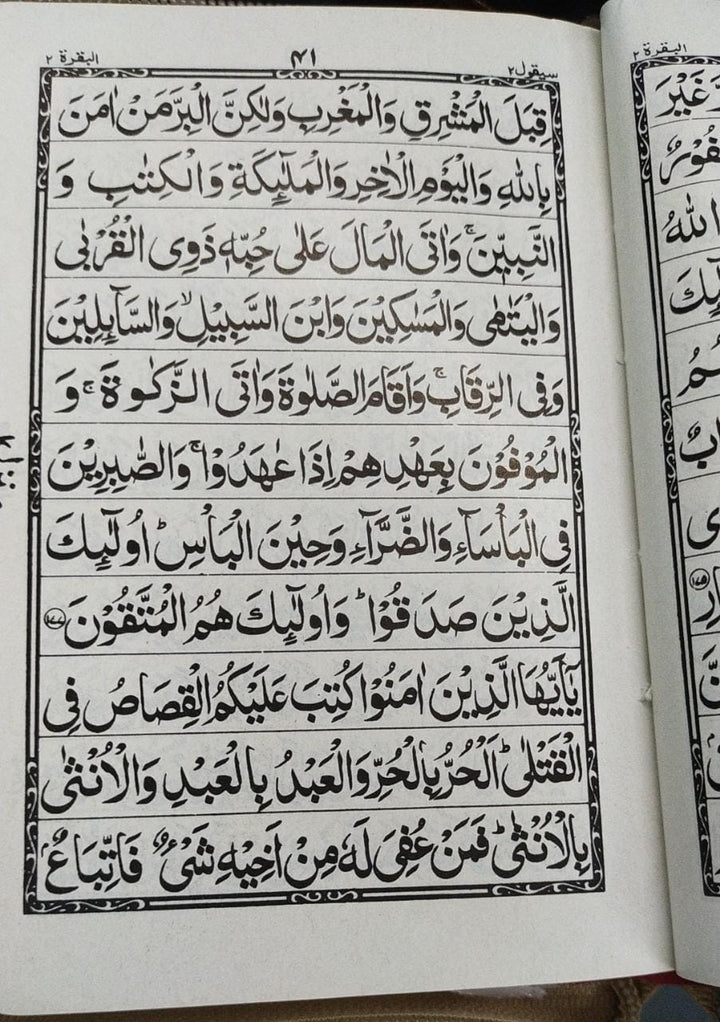 البقرة ٢
٤١
سيقول ٢
قِبَلَ الْمَشْرِقِ وَالْمَغْرِبِ وَلٰكِنَّ الْبِرَّ مَنْ اٰمَنَ
بِاللّٰهِ وَالْيَوْمِ الْاٰخِرِ وَالْمَلٰٓئِكَةِ وَالْكِتٰبِ وَ
النَّبِيّٖنَ ۚ وَاٰتَى الْمَالَ عَلٰى حُبِّهٖ ذَوِى الْقُرْبٰى
وَالْيَتٰمٰى وَالْمَسٰكِيْنَ وَابْنَ السَّبِيْلِ ۙ وَالسَّآئِلِيْنَ
وَفِى الرِّقَابِ ۚ وَاَقَامَ الصَّلٰوةَ وَاٰتَى الزَّكٰوةَ ۚ وَ
الْمُوْفُوْنَ بِعَهْدِهِمْ اِذَا عٰهَدُوْا ۚ وَالصّٰبِرِيْنَ
فِى الْبَاْسَآءِ وَالضَّرَّآءِ وَحِيْنَ الْبَاْسِ ؕ اُولٰٓئِكَ
الَّذِيْنَ صَدَقُوْا ؕ وَاُولٰٓئِكَ هُمُ الْمُتَّقُوْنَ ١٧٧
يٰٓاَيُّهَا الَّذِيْنَ اٰمَنُوْا كُتِبَ عَلَيْكُمُ الْقِصَاصُ فِى
الْقَتْلٰى ؕ اَلْحُرُّ بِالْحُرِّ وَالْعَبْدُ بِالْعَبْدِ وَالْاُنْثٰى
بِالْاُنْثٰى ؕ فَمَنْ عُفِىَ لَهٗ مِنْ اَخِيْهِ شَىْءٌ فَاتِّبَاعٌۢ
البقرة ٢
غَيْرَ
اللّٰهُ